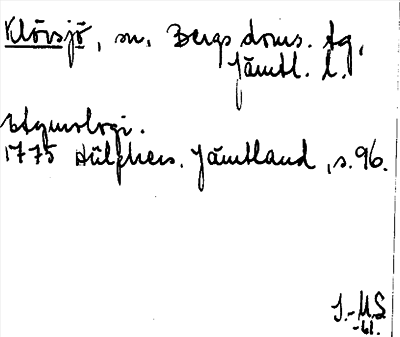 Klövsjö, sn, Bergs doms. tg,
Jämtl. l.
Etymologi.
1775 Hülphers. Jämtland, s. 96.
I.-M.S.
-61.